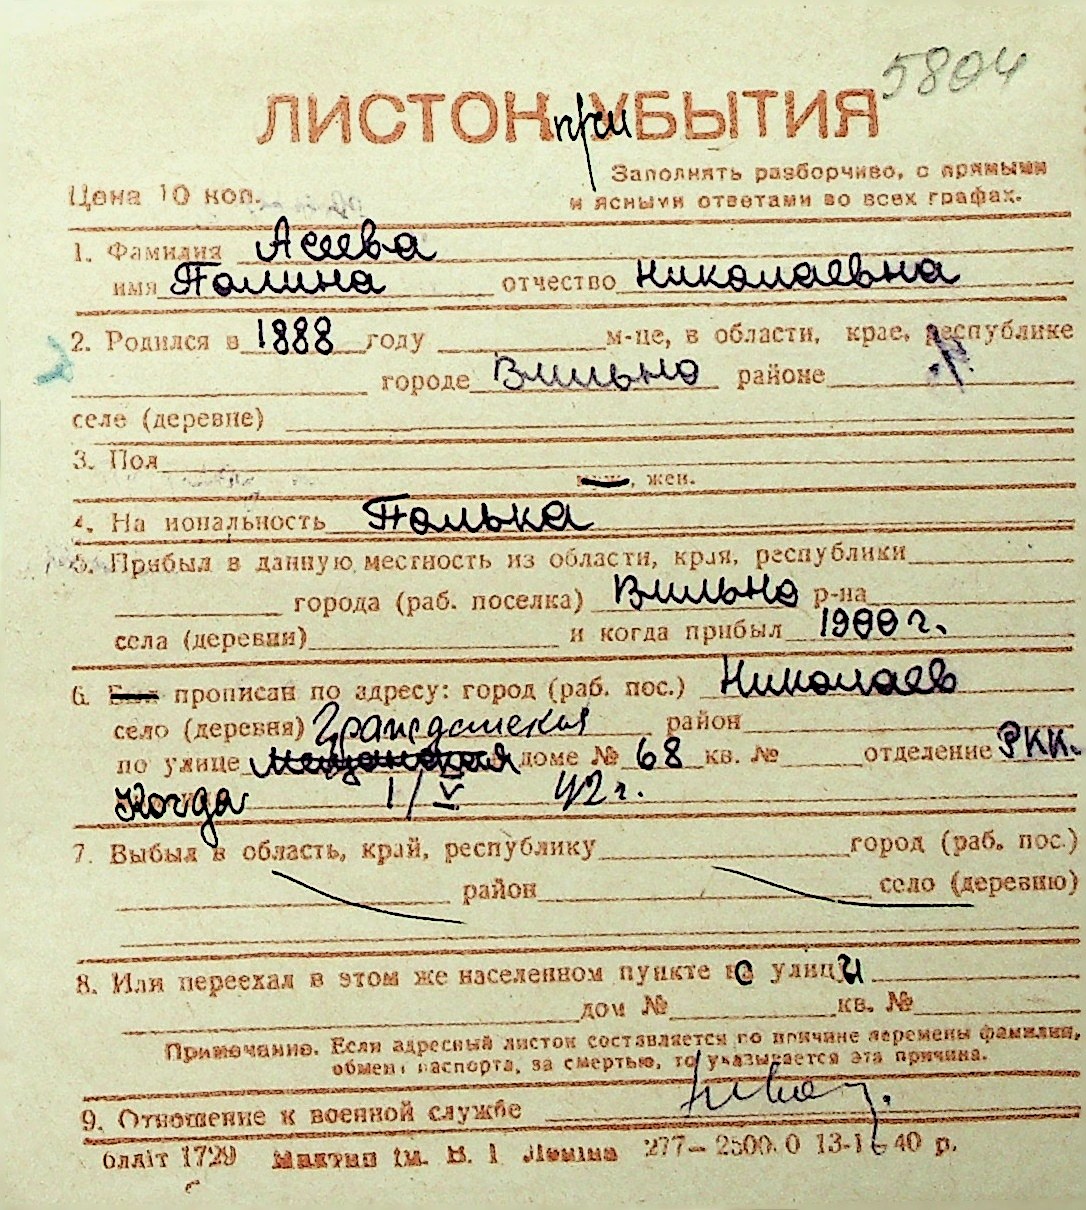 5804
ЛИСТОК при УБЫТИЯ
Заполнять разборчиво, с прямыми
Цена 10 коп. и ясными ответами во всех графах.
1. Фамилия Асеева
имя Полина отчество Николаевна
2. Родился в 1888 году м-це, в области, крае, республике
городе Вильно районе
селе (деревне)
3. Пол
муж., жен.
4. На иональность Полька
5. Прибыл в данную местность из области, края, республики
города (раб. поселка) Вильно р-на
села (деревни) и когда прибыл 1900 г.
6. Был прописан по адресу: город (раб. пос.) Николаев
село (деревня) Гражданская район
по улице Мещанская доме № 68 кв. № отделение РКК.
Когда 1/V 42 г.
7. Выбыл в область, край, республику город (раб. пос.)
район село (деревню)
8. Или переехал в этом же населенном пункте с улицы
дом № кв. №
Примечание. Если адресный листок составляется по причине перемены фамилии,
обмена паспорта, за смертью, то указывается эта причина.
9. Отношение к военной службе
блліт 1729 Миктип ім. В. І Леніна 277–2500.0 13-1 40 р.